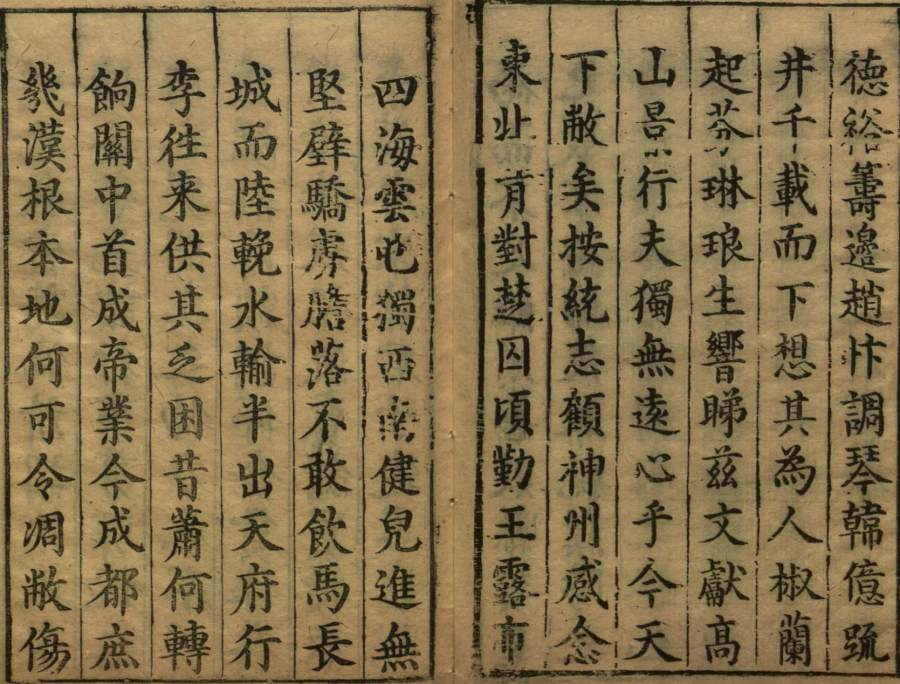 德裕籌邊趙忭調琴韓億疏
井千載而下想其為人椒蘭
起芬琳琅生響睇兹文獻高
山景行夫獨無遠心乎今天
下敝矣按統志顧神州感念
東北肯對楚囚頃勤王露布
四海雲屯獨西南健兒進無
堅壁驕虜膽落不敢飲馬長
城而陸輓水輸半出天府行
李徃来供其乏困昔蕭何轉
餉關中首成帝業今成都庶
幾漢根本地何可令凋敝傷